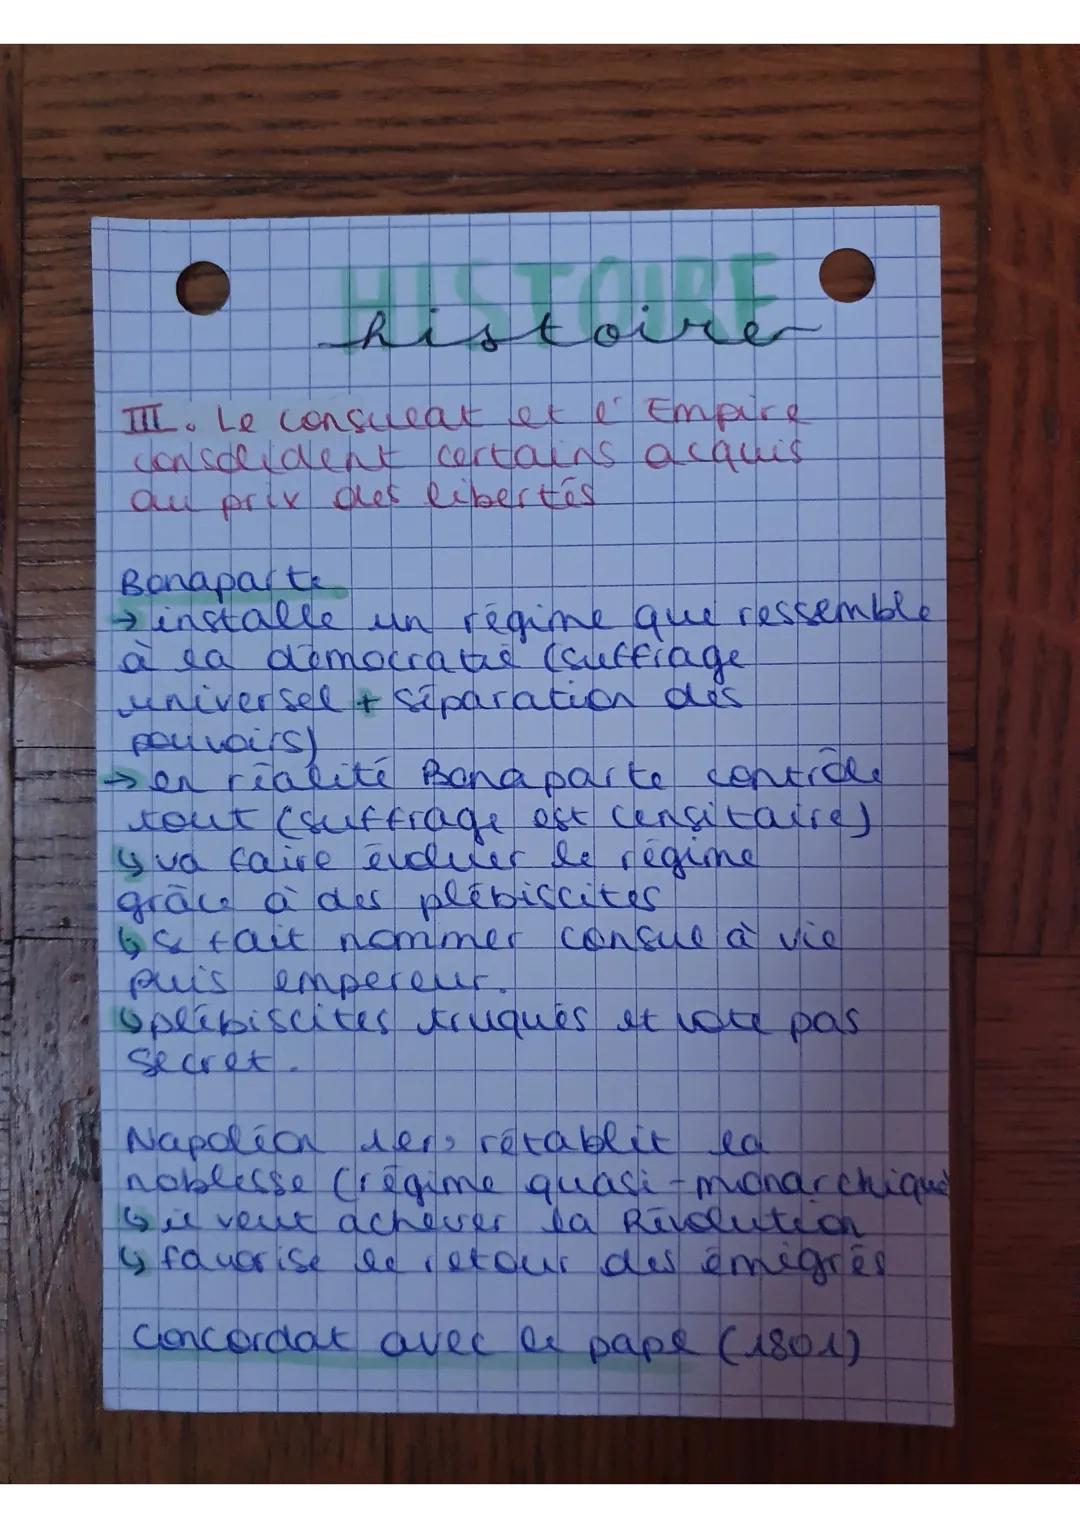 HISTOIRE
histoire
III. Le consulat et l'Empire
consolident certains acquis
au prix des libertés
Bonaparte
→ installe un régime que ressemble
à la démocratie (suffrage
universel + séparation des
pouvoirs)
→ en réalité Bonaparte contrôle
tout (suffrage est censitaire)
↳ va faire évoluer le régime
grâce à des plébiscites
↳ se fait nommer consul à vie
puis empereur.
↳ plébiscites truqués et vote pas
secret.
Napoléon 1er, rétablit la
noblesse (régime quasi-monarchique
↳ il veut achever la Révolution
↳ favorise le retour des émigrés
Concordat avec le pape (1801)